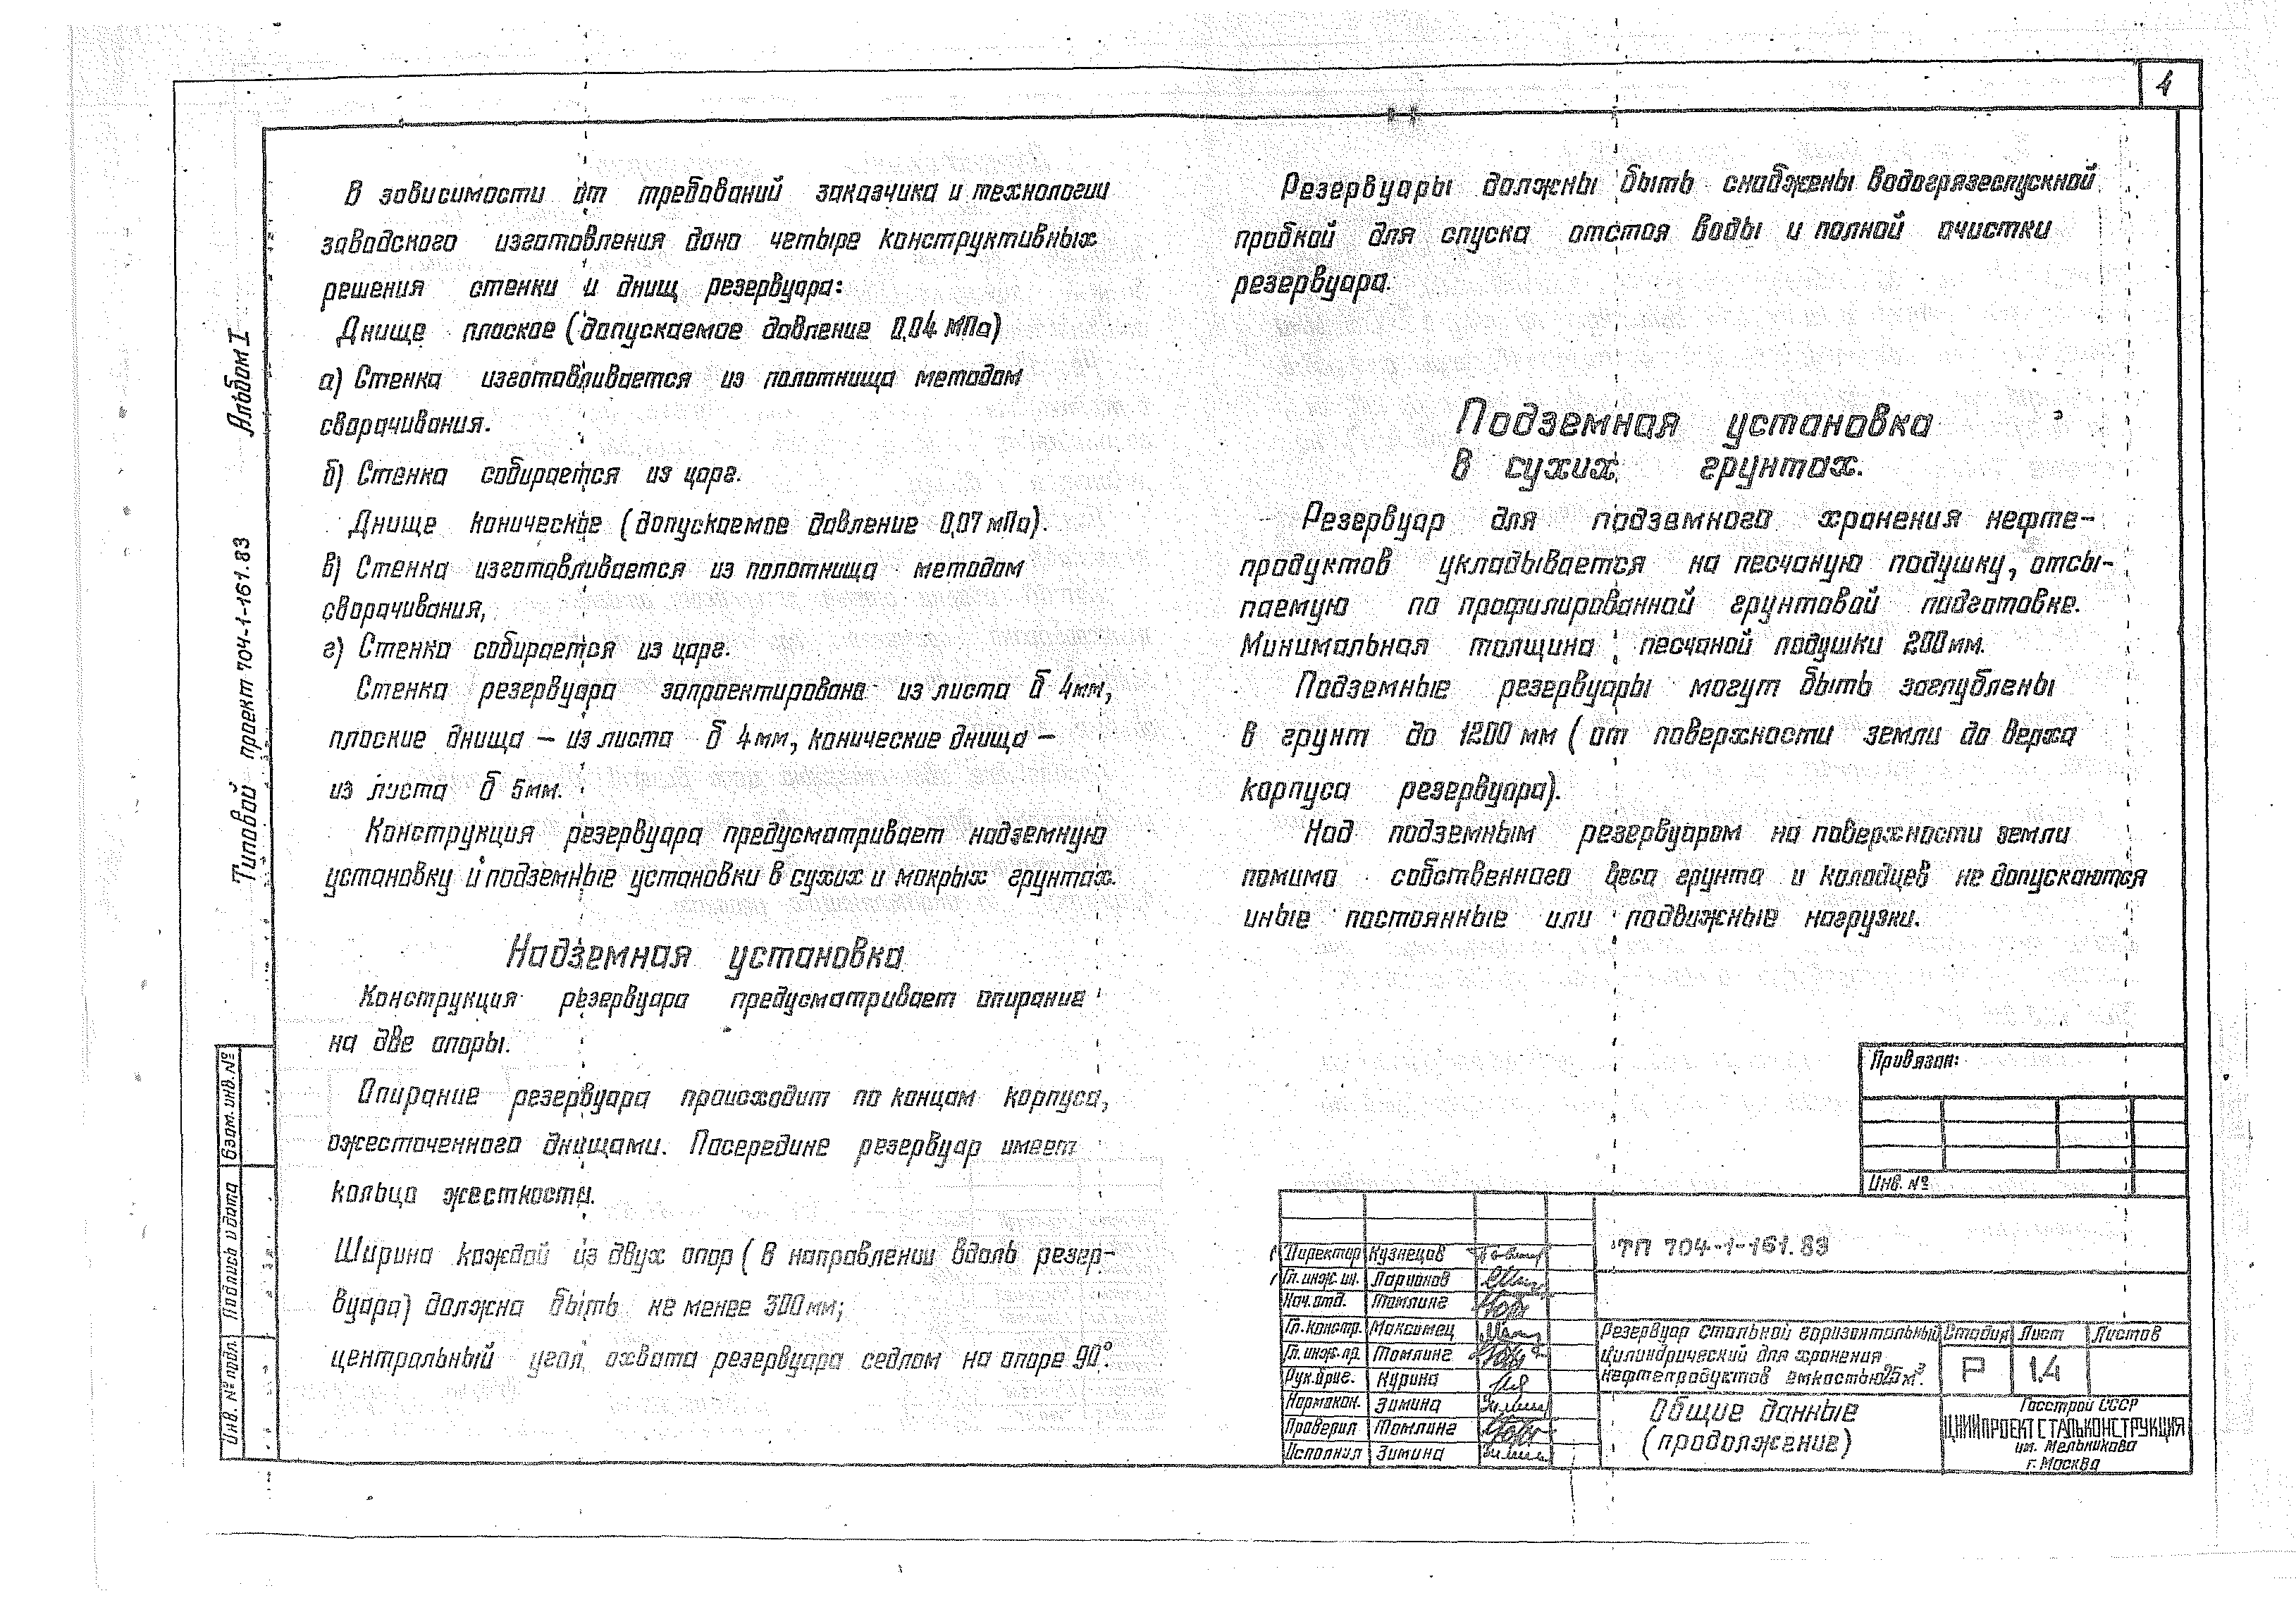 4
В зависимости от требований заказчика и технологии
заводского изготовления дано четыре конструктивных
решения стенки и днищ резервуара:
Днище плоское (допускаемое давление 0,04 МПа)
а) Стенка изготавливается из полотнища методом
сворачивания.
б) Стенка собирается из царг.
Днище коническое (допускаемое давление 0,07 мПа).
в) Стенка изготавливается из полотнища методом
сворачивания,
г) Стенка собирается из царг.
Стенка резервуара запроектирована из листа δ 4мм,
плоские днища – из листа δ 4мм, конические днища –
из листа δ 5мм.
Конструкция резервуара предусматривает надземную
установку и подземные установки в сухих и мокрых грунтах.
Надземная установка
Конструкция резервуара предусматривает опирание
на две опоры.
Опирание резервуара происходит по концам корпуса,
ожесточенного днищами. Посередине резервуар имеет
кольцо жесткости.
Ширина каждой из двух опор ( в направлении вдоль резер-
вуара) должна быть не менее 300мм;
центральный угол охвата резервуара седлом на опоре 90°.
Резервуары должны быть снабжены водогрязеспускной
пробкой для спуска отстоя воды и полной очистки
резервуара.
Подземная установка
в сухих грунтах.
Резервуар для подземного хранения нефте-
продуктов укладывается на песчаную подушку, отсы-
паемую по профилированной грунтовой подготовке.
Минимальная толщина песчаной подушки 200мм.
Подземные резервуары могут быть заглублены
в грунт до 1200 мм ( от поверхности земли до верха
корпуса резервуара).
Над подземным резервуаром на поверхности земли
помимо собственного веса грунта и колодцев не допускаются
иные постоянные или подвижные нагрузки.
Типовой проект 704-1-161.83 Альбом I
Взам. инв. №
Подпись и дата
Инв. № подл.
Привязан:
Инв. №
Директор Кузнецов
Гл. инж. ин. Ларионов
Нач. отд. Томлинг
Гл. констр. Максимец
Гл. инж. пр. Томлинг
Рук. бриг. Курина
Нормокон. Зимина
Проверил Томлинг
Исполнил Зимина
ТП 704-1-161.83
Резервуар стальной горизонтальный
цилиндрический для хранения
нефтепродуктов емкостью 25 м³.
Стадия Лист Листов
Р 1.4
Общие данные
(продолжение)
Госстрой СССР
ЦНИИПРОЕКТСТАЛЬКОНСТРУКЦИЯ
им. Мельникова
г. Москва